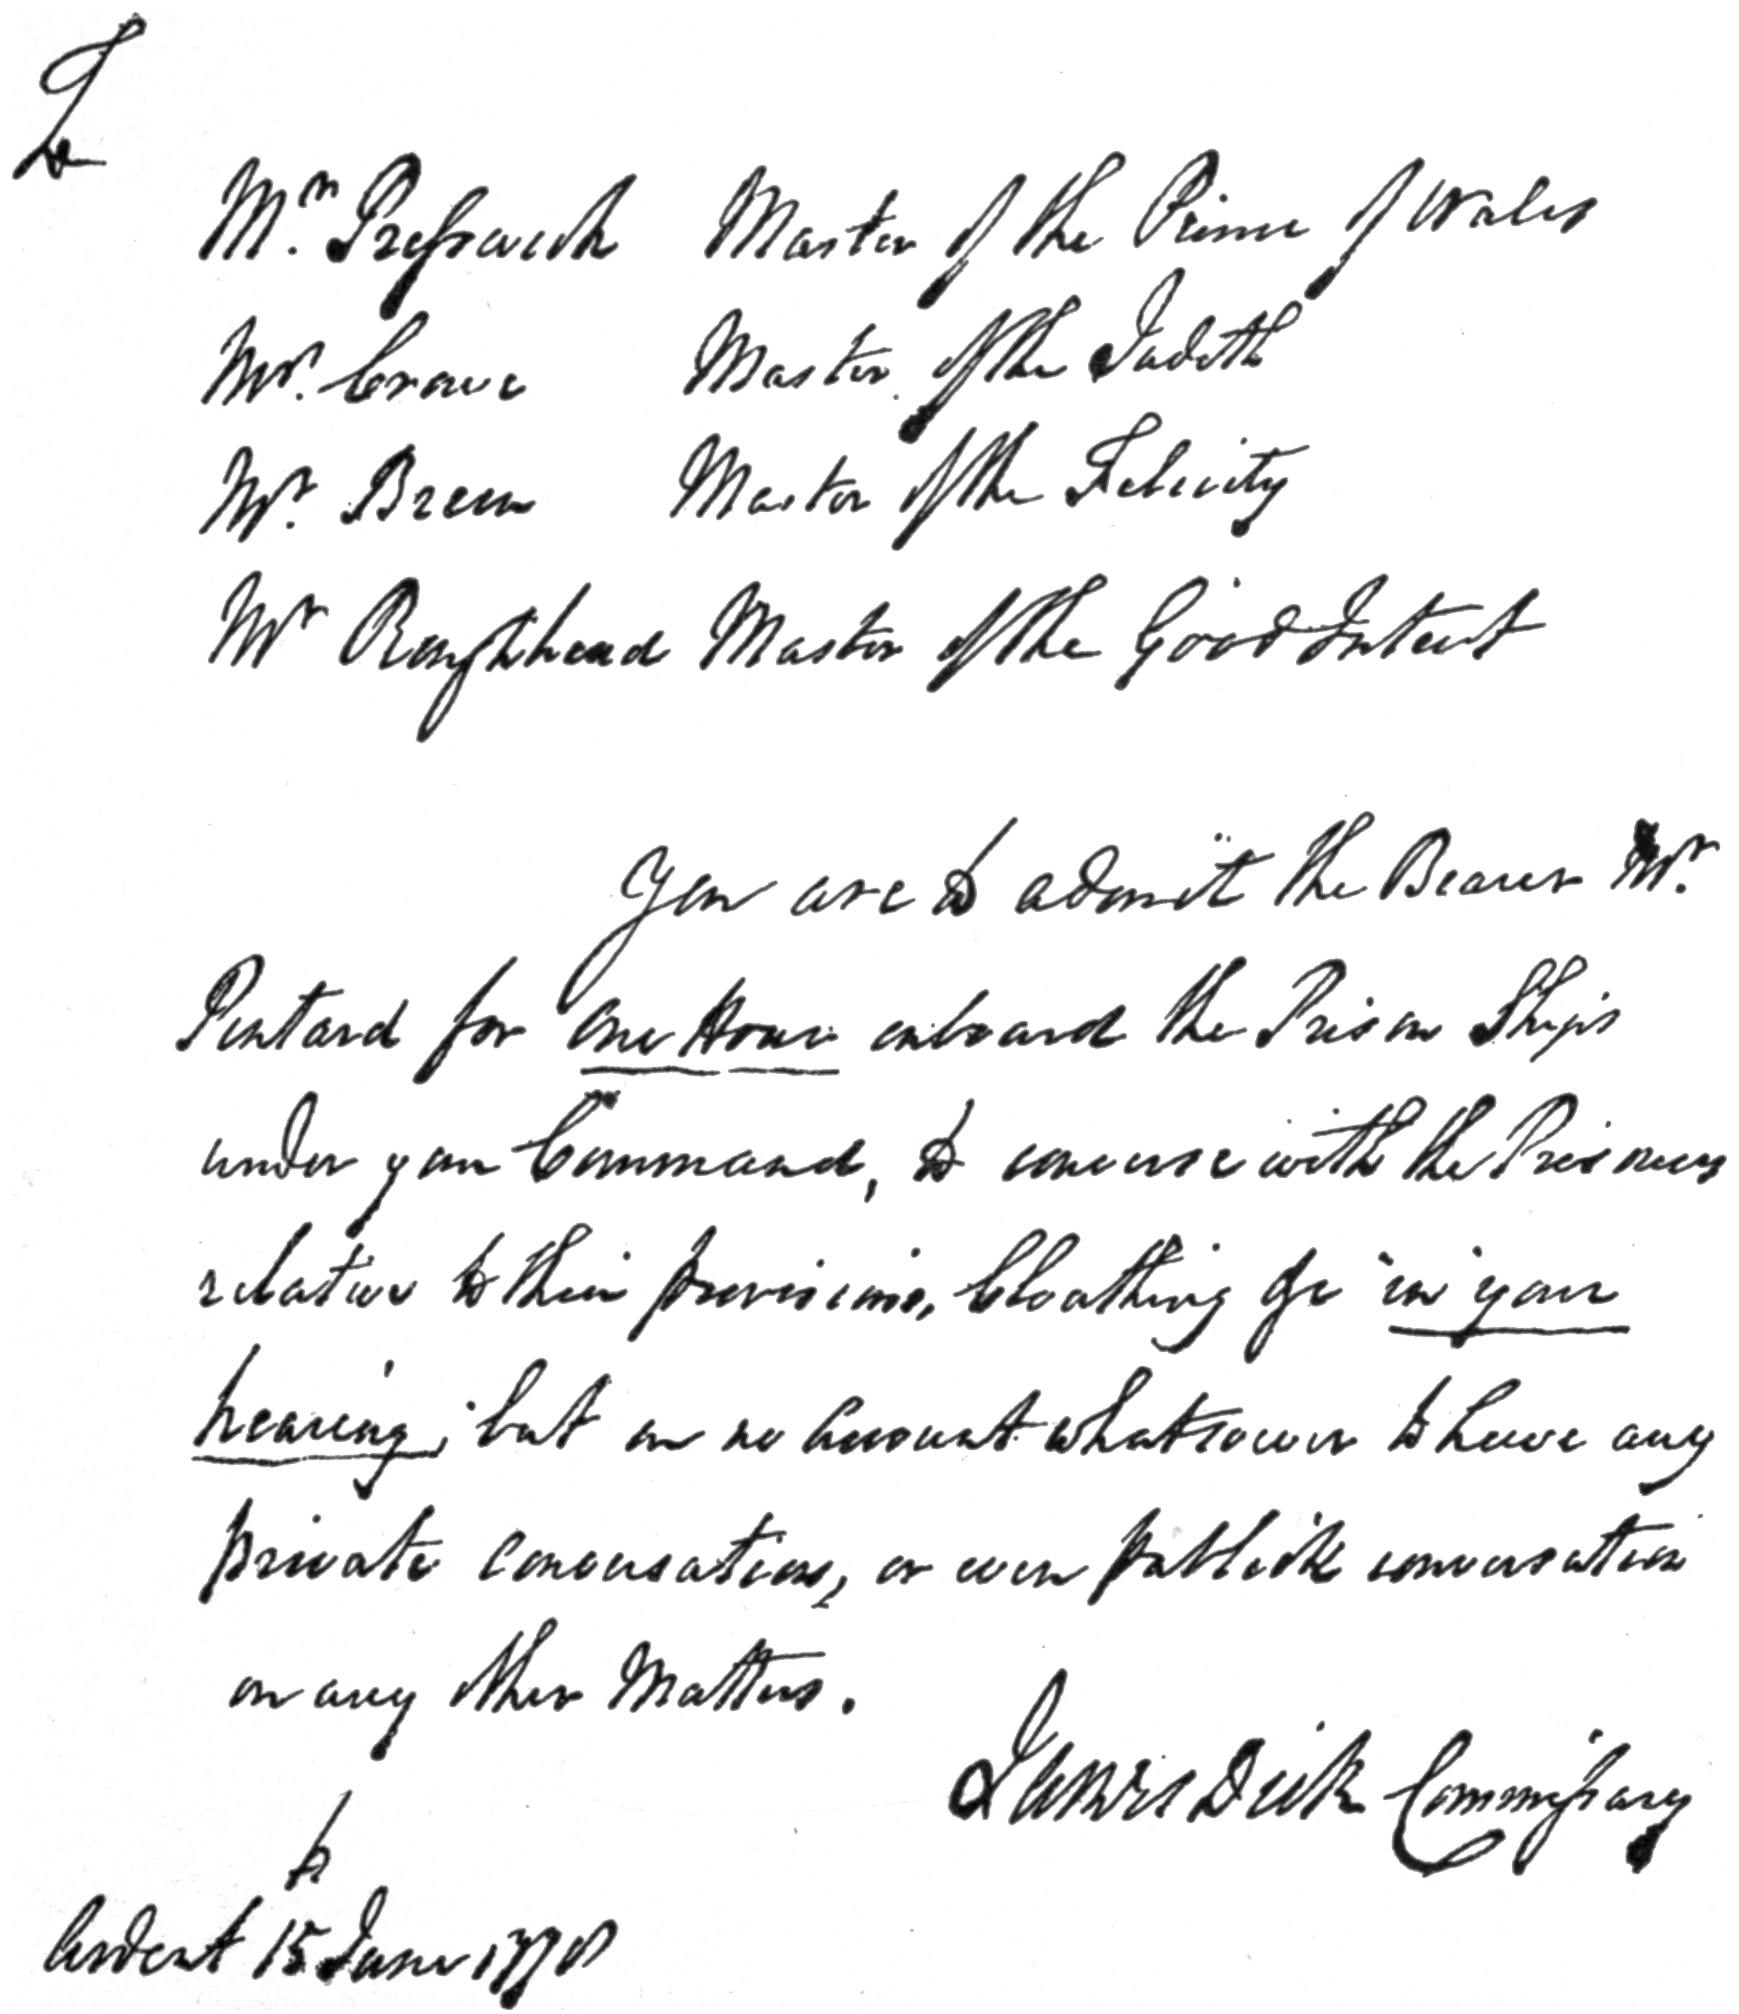 To
Mr. Preſswich Master of the Prince of Wales
Mr. Crave Master of the Judith
Mr. Breen Master of the Felicity
Mr Roughhead Master of the Good Intent
You are to admit the Bearer Mr.
Pintard for one Hour onboard the Prison Ships
under your Command, to converse with the Prisoners
relative to their provisions, Cloathing &c in your
hearing, but on no Account whatsoever to have any
private conversation, or even publick conversation
on any other Matters.
James Dick Commiſsary
Ardent 15th June 1778